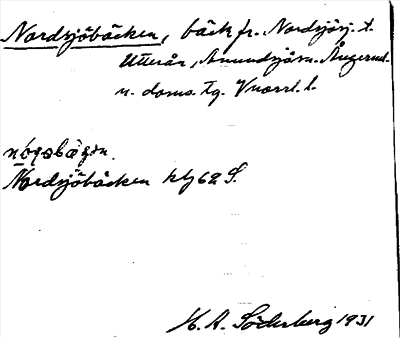 Nordsjöbäcken, bäck fr. Nordsjöj. t.
Utterån, Anundsjösn. Ångerml.
n. doms. tg. Vnorrl. l.
Nordsjöbäcken kbl 62 S.
H. A. Söderberg 1931